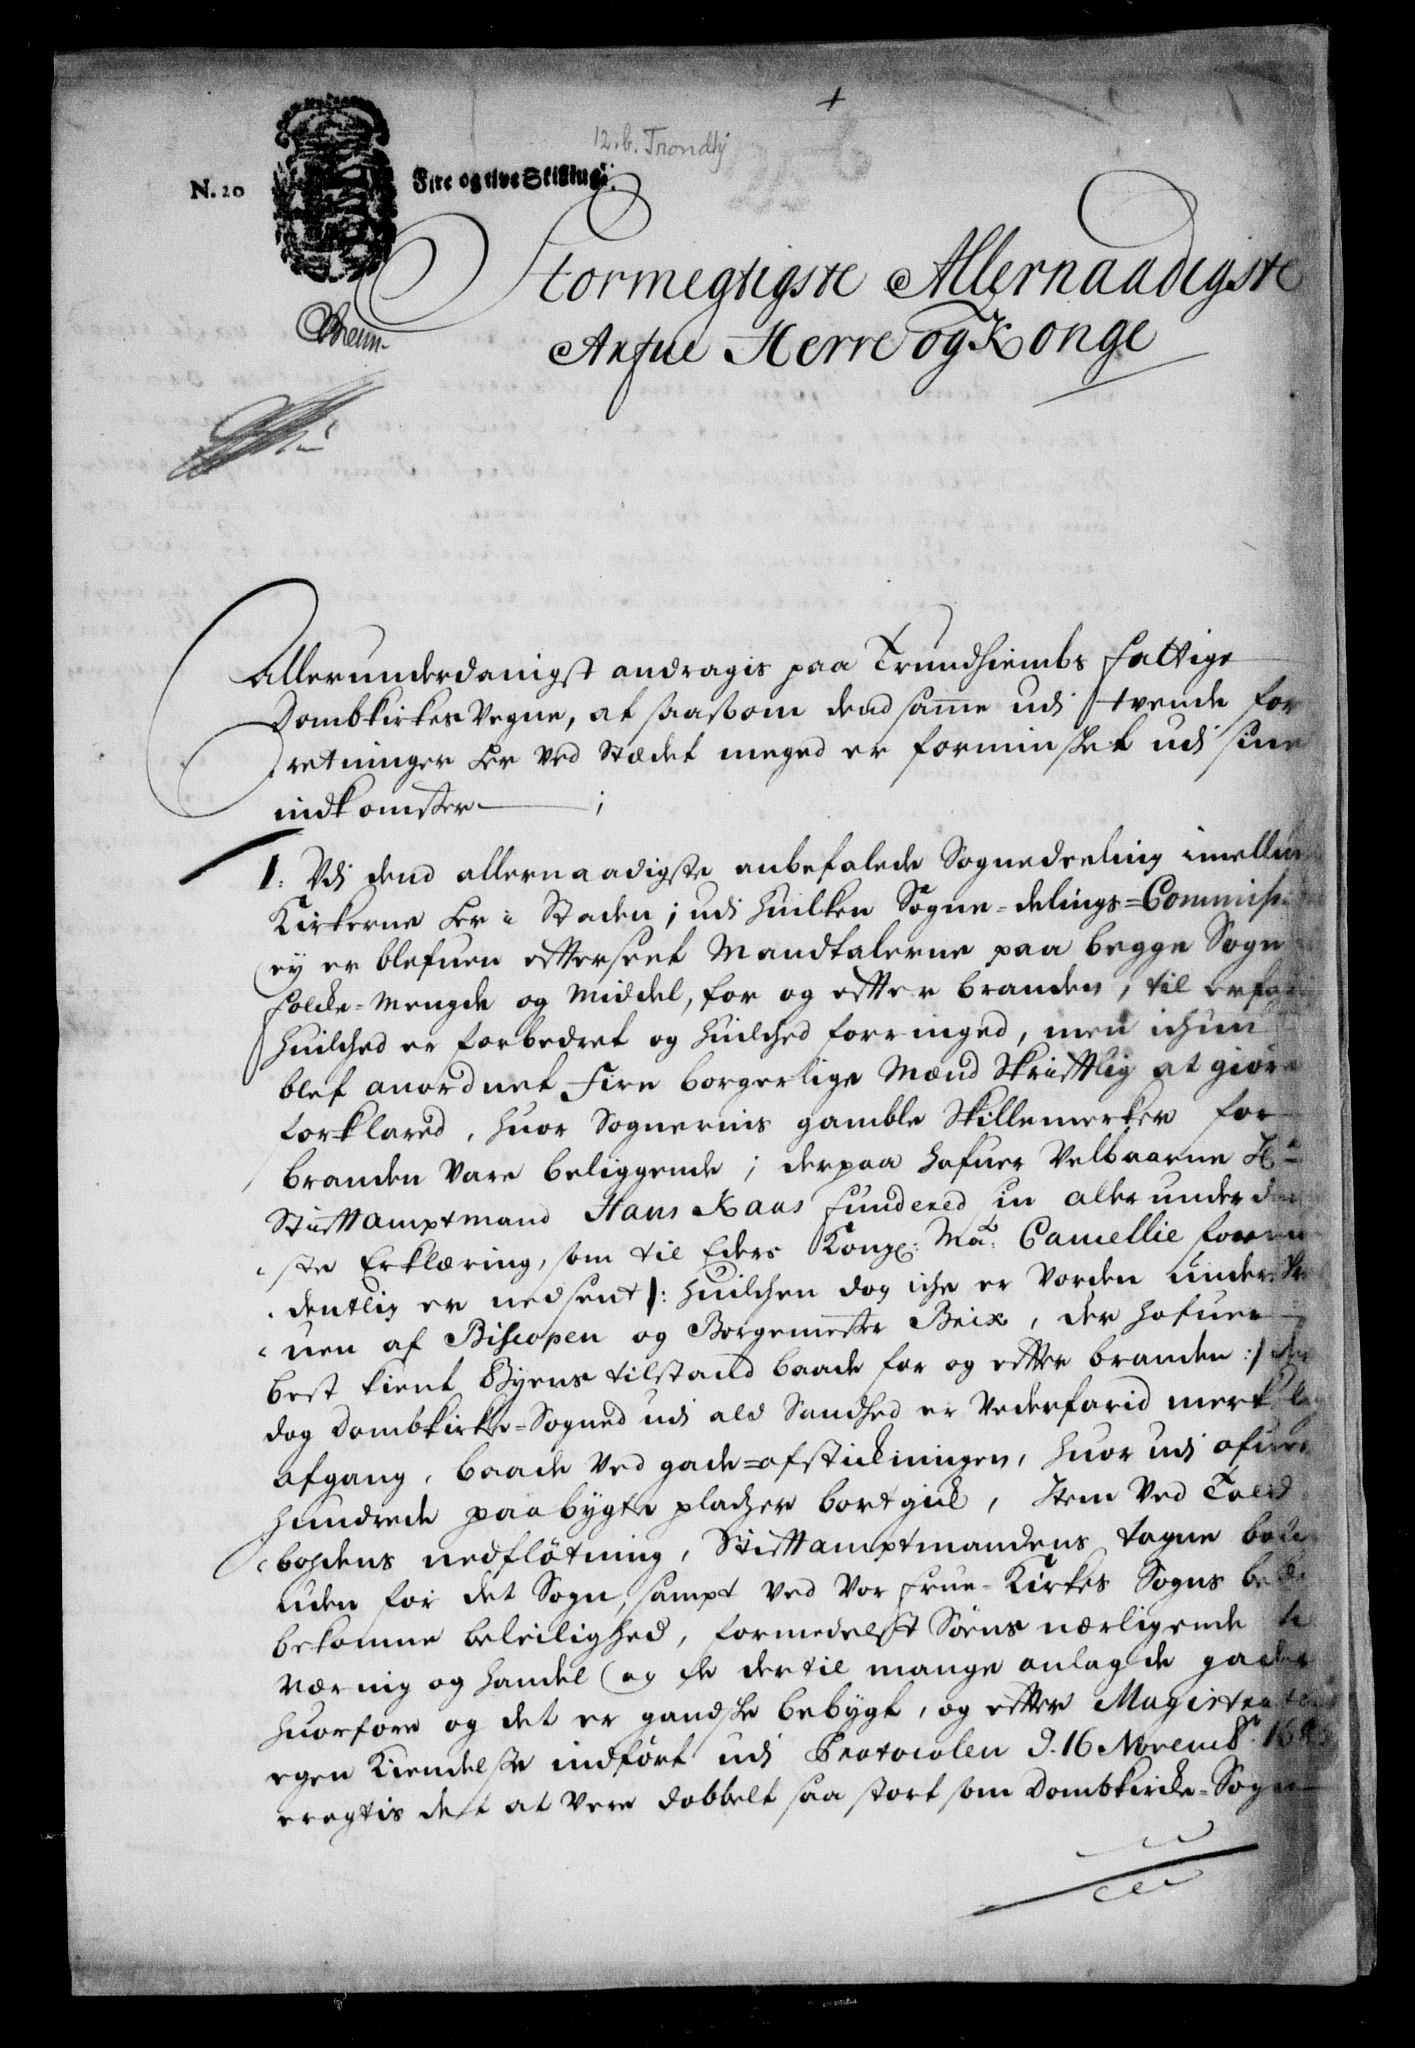 12.b. Trondhj
N. 20
Fire og tive Skilling.
Stormegtigste Allernaadigste
Arfue Herre og Konge
Allerunderdanigst andragis paa Trundhiembs fattige
Dombkirkes Vegne, at saasom dend samme udi tvende for
retninger her ved Stædet meged er forminsket udi sine
indkomster ;
1. Udi dend allernaadigste anbefalede Sognedeeling imellum
Kirkerne her i Staden; udi huilken Sogne-delings=Commiss
ey er blefuen efterseet Mandtalerne paa begge Sogne
folcke-Mengde og Middel, for og efter branden, til erfare
huilched er forbedret og huilched forringed, men ichun
blef anordnet fire borgerlige Mænd Skriftlig at giøre
forklared, huor Sognernis gamble Skillemerker for
branden vare beliggende; derpaa hafuer Velbaarne Hr
Stiftamptmand Hans Kaas funderet sin allerunderdan
ste Erklæring, som til Eders Kongl: Ma: Cancellie formo
dentlig er nedsent /: huilchen dog iche er vorden undersk
uen af Biscopen og Borgemester Brix, der hafuer
best kient Byens tilstand baade for og efter branden :/ der
dog Dombkirke-Sogned udi ald Sandhed er vederfarid merkelig
afgang, baade ved gade=afstickningen, huor udi ofuer
hundrede paabygte pladzer bortgick, Item ved Told
bodens nedfløtning, Stiftamptmandens tagne bolig
uden for det Sogn, sampt ved Vor frue-Kirkes Sogns
bekomne beleilighed, formedelst Søens nærligende
næring og handel og de dertil mange anlagde gader
huorfore og det er gandske bebygt, og efter Magistratens
egen Kiendelse indført udi Protocolen d. 16 Novembr. 168
eragtis det at vere dobbelt saa stort som Dombkircke-Sogne